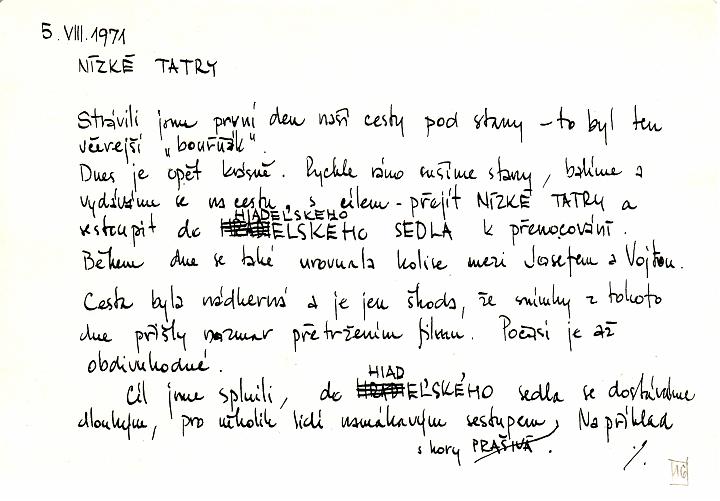 5.VIII.1971
NÍZKÉ TATRY
Strávili jsme první den naší cesty pod stany – to byl ten
včerejší „bouřňák".
Dnes je opět krásně. Rychle ráno sušíme stany, balíme a
vydáváme se na cestu, s cílem - přejít NÍZKÉ TATRY a
HIADEĽSKEHO
sestoupit do ELSKÉHO SEDLA k přenocování.
Během dne se také urovnala kolize mezi Josefem a Vojtou.
Cesta byla nádherná a je jen škoda, že snímky z tohoto
dne přišly nazmar přetržením filmu. Počasí je až
obdivuhodné.
HIAD
Cíl jsme splnili, do EĽSKÉHO sedla se dostáváme
dlouhým, pro několik lidí namáhavým sestupem, Například
s hory PRAŠIVÁ.
./.
16